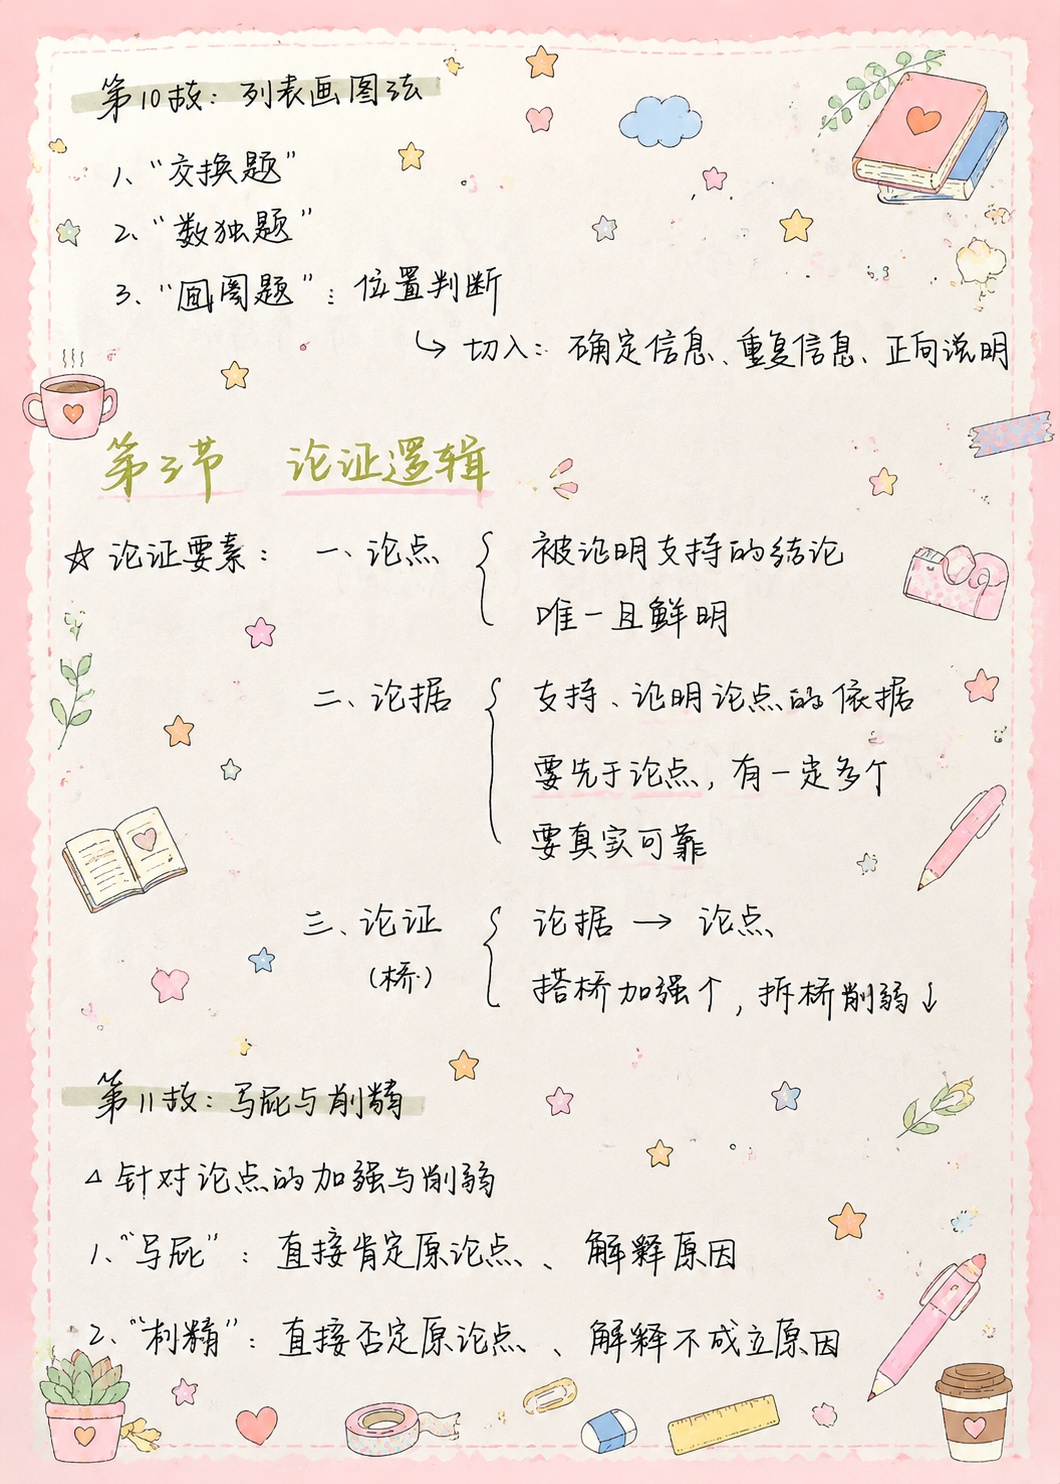 第10故：列表画图法
1、“交换题”
2、“数独题”
3、“画圈题”：位置判断
↳ 切入：确定信息、重复信息、正向说明
第三节 论证逻辑
☆ 论证要素：一、论点 { 被证明支持的结论
唯一且鲜明
二、论据 { 支持、证明论点的依据
要先于论点，有一定多个
要真实可靠
三、论证 { 论据 → 论点
（桥）
搭桥加强↑，拆桥削弱↓
第11故：马屁与削精
△ 针对论点的加强与削弱
1、“马屁”：直接肯定原论点、解释原因
2、“精”：直接否定原论点、解释不成立原因